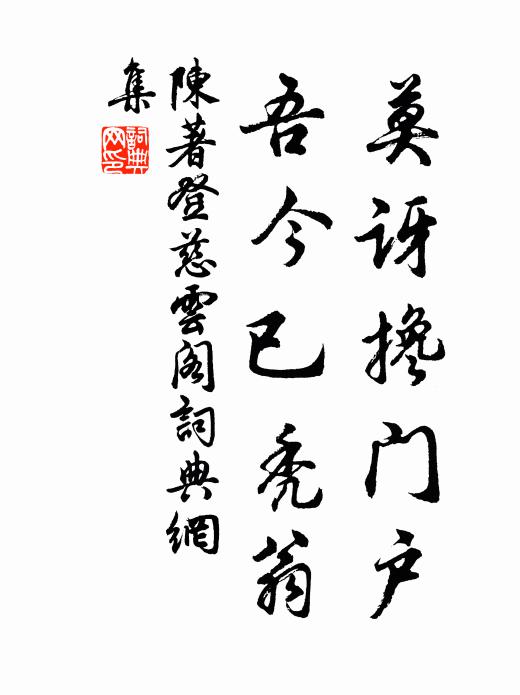 莫讶搀门户
吾今已秃翁
陳著登慈雲阁詞典網
集
詞典网印